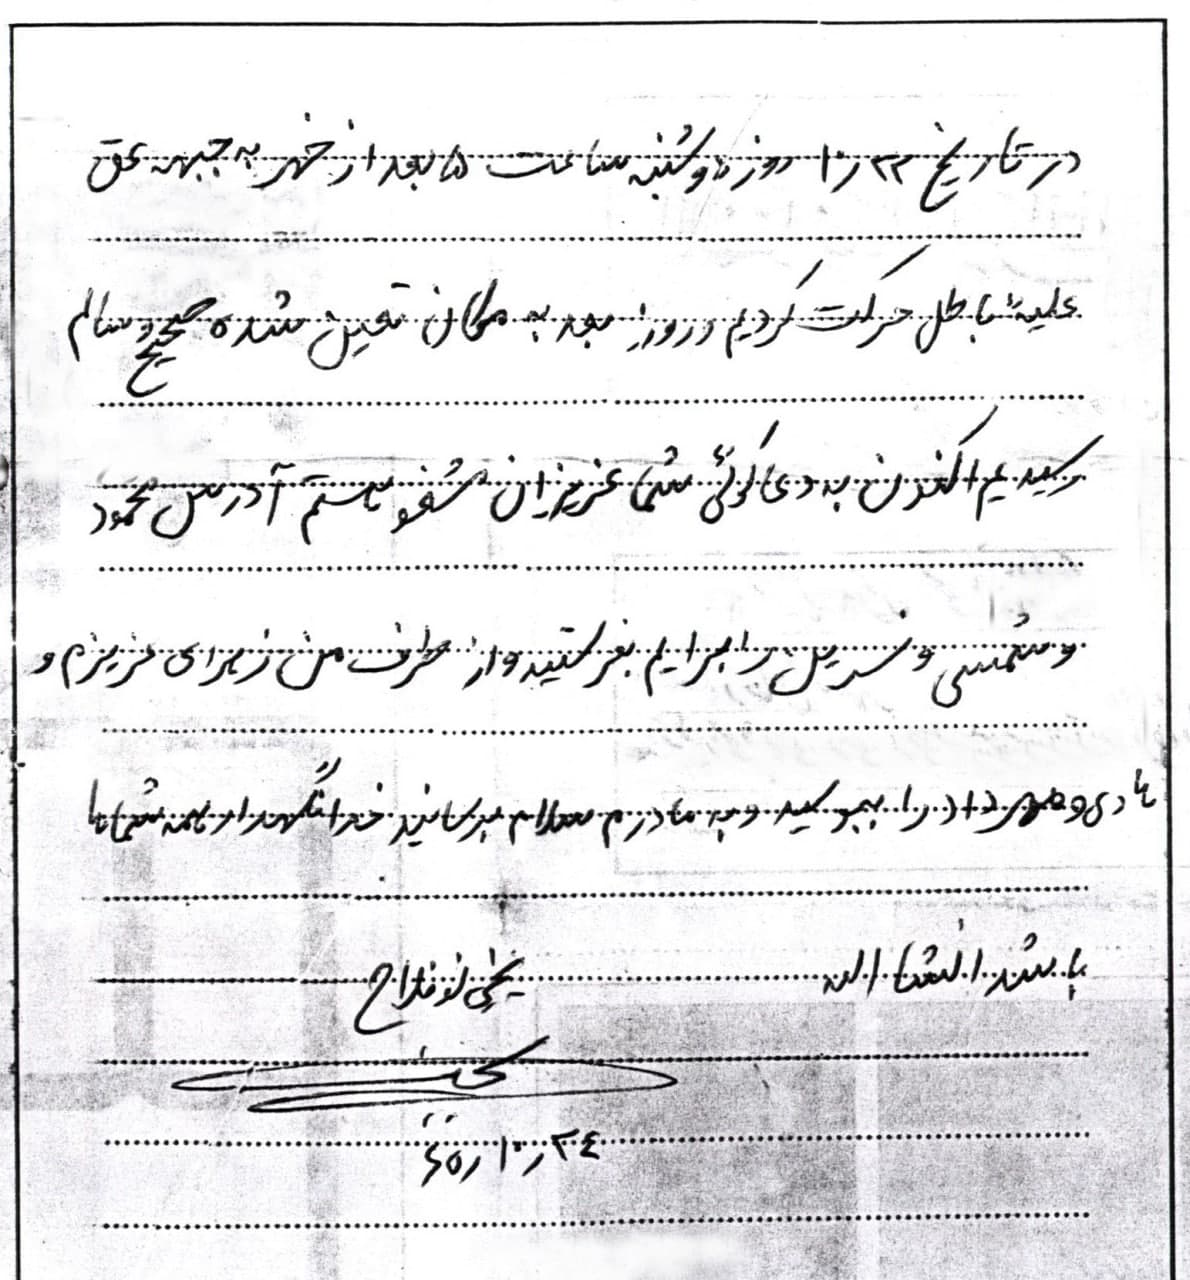 در تاریخ ۲۲ ر۱۰ روز دوشنبه ساعت ۵ بعد از ظهر به جبهه حق
علیه باطل حرکت کردیم و روز بعد به مکان تعین شده صحیح و سالم
رسیدیم اکنون به دعاگوئی شما عزیزان مشغول هستم آدرس محمود
و شمسی و نسرین را برایم بفرستید و از طرف من زهرای عزیزم و
هادی و مهرداد را ببوسید و به مادرم سلام برسانید خدا نگهدار همه شماها
باشد انشا اله یحیی نوفلاح
۲۴ ر۱۰ ر۶۵